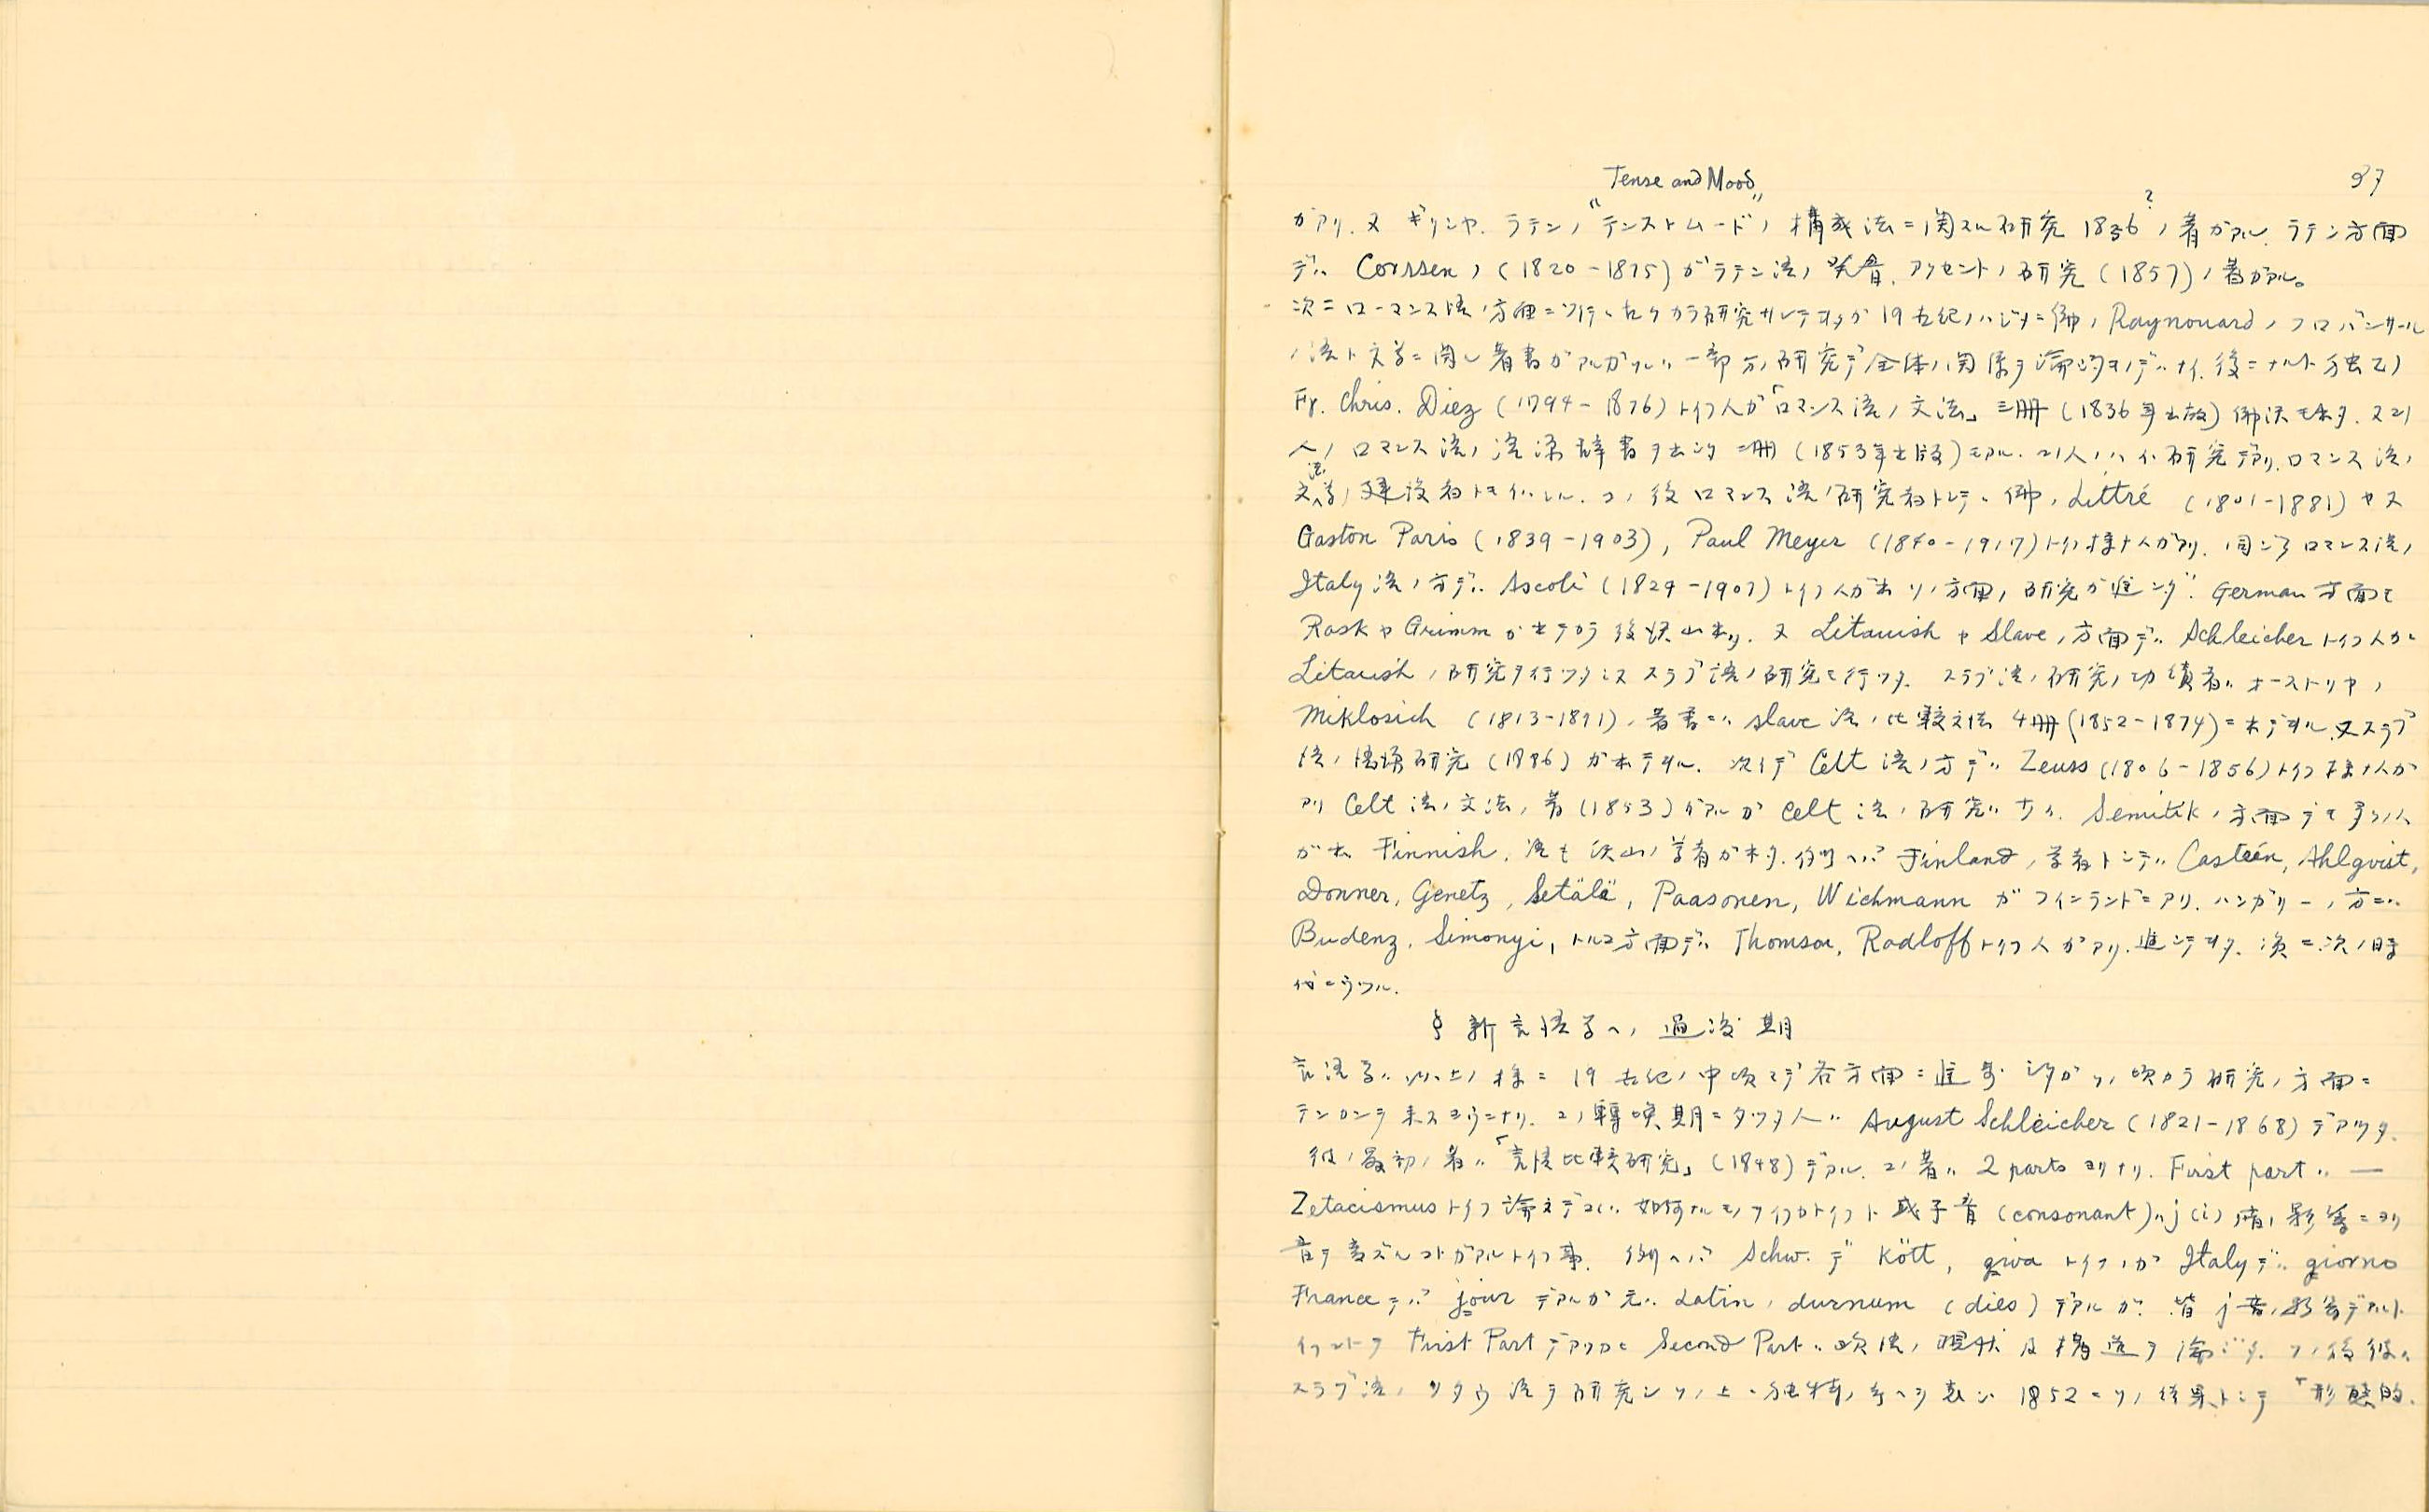 Tense and Mood
37
ガアリ. 又 ギリシヤ. ラテンノ "テンストムード"ノ 構成法ニ関スル研究 1836?ノ著ガアル. ラテン方面
デハ Corssenノ (1820-1875) ガラテン語ノ発音. アクセントノ研究 (1857)ノ著ガアル。
次ニローマンス語ノ方面ニツイテハ古クカラ研究サレテオタガ 19世紀ノハジメニ佛ノ Raynouardノプロバンサール
ノ語ト文学ニ関シ著書ガアルガソレハ一部分ノ研究デ全体ノ関係ヲ論ジタモノデハナイ. 後ニナルト独乙ノ
Fr. Chris. Diez (1794-1876) トイフ人ガ「ロマンス語ノ文法」三冊 (1836年出版) 佛訳モ出タ. 又コノ
人ノロマンス語ノ語源辞書ヲ出シタ 二冊 (1853年出版) モアル. コノ人ノハイイ研究デアリ. ロマンス語ノ
文語学ノ建設者トモイハレル. コノ後ロマンス語ノ研究者トシテハ佛ノ Littré (1801-1881) ヤ又
Gaston Paris (1839-1903), Paul Meyer (1840-1917) トイフ様ナ人ガアリ. 同ジクロマンス語ノ
Italy語ノ方デハ Ascoli (1829-1907) トイフ人ガ出ソノ方面ノ研究ガ進ンダ. German方面モ
Rask ヤ Grimm ガ出テカラ後沢山出タ. 又 Litauish ヤ Slaveノ方面デハ Schleicher トイフ人ガ
Litauishノ研究ヲ行ツタシ又スラブ語ノ研究モ行ツタ. スラブ語ノ研究ノ功績者ハオーストリヤノ
Miklosich (1813-1891). 著書ニハ slave語ノ比較文法 4冊 (1852-1874) ニ出デヲル. 又スラブ
語ノ語源研究 (1886) ガ出テヲル. 次イデ Celt語ノ方デハ Zeuss (1806-1856) トイフ様ナ人ガ
アリ Celt語ノ文法ノ著 (1853) ガアルガ Celt語ノ研究ハ少イ. Semitikノ方面デモ多クノ人
ガ出 Finnish. 語モ沢山ノ学者ガ出タ. 例ヘバ Finlandノ学者トシテハ Castrén, Ahlqvist,
Donner, Genetz, Setälä, Paasonen, Wichmann ガフインランドニアリ. ハンガリーノ方ニハ
Budenz. Simonyi, トルコ方面デハ Thomson, Radloff トイフ人ガアリ. 進ンデオタ. 次ニ次ノ時
代ニウツル.
§ 新言語学ヘノ過渡期
言語学ハ以上ノ様ニ 19世紀ノ中頃マデ各方面ニ進歩シタガソノ頃カラ研究ノ方面ニ
テンカンヲ来スヨウニナリ. コノ轉換期ニタツタ人ハ August Schleicher (1821-1868) デアツタ.
彼ノ最初ノ著ハ「言語比較研究」(1848) デアル. コノ著ハ 2 parts ヨリナリ. First part ハ —
Zetacismus トイフ論文デコレハ如何ナルモノヲイフカトイフト或子音 (consonant) ハ j (i)ノ音ノ影響ニヨリ
音ヲ変ズルコトガアルトイフ事. 例ヘバ Schw. デ Kött, giva トイフノガ Italy デハ giorno
France デハ jour デアルガ元ハ Latinノ durnum (dies) デアルガ. 皆 j音ノ影響デアルト
イフコトヲ First Part デアツカヒ Second Part ハ欧語ノ現状及構造ヲ論ジタ. ソノ後彼ハ
スラブ語ノリタウ語ヲ研究シソノ上ニ独特ノ考ヘヲ表シ 1852ニソノ結果トシテ「形態的.